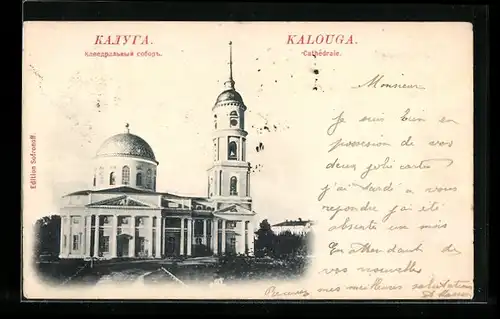 КАЛУГА. KALOUGA.
Каѳедральный соборъ. Cathédrale.
Edition Sodronoff
Monsieur
Je suis bien en
possession de vos
deux jolie cartes
j'ai tardé a vous
repondre j'ai été
absente un mois
En attendant de
vos nouvelles
Recevez mes meilleures salutations